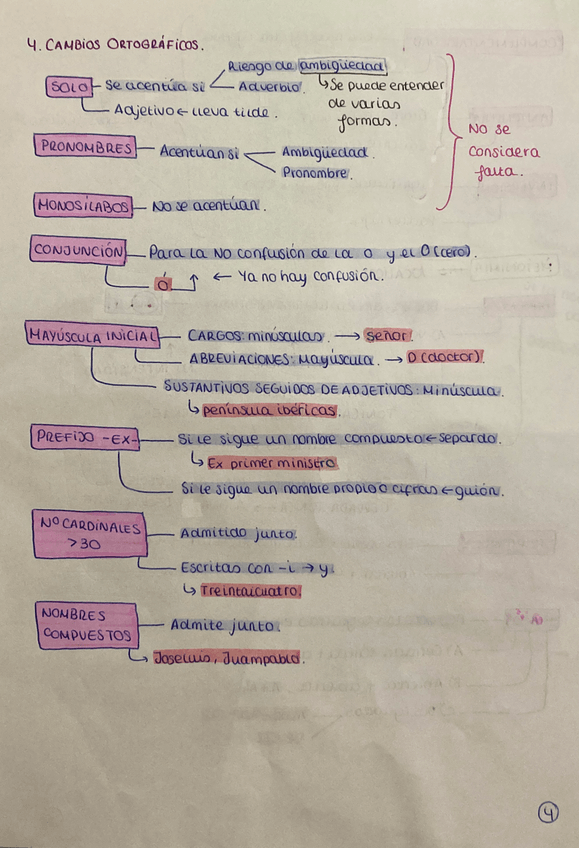 4. CAMBIOS ORTOGRÁFICOS.
Riesgo de ambigüedad
SOLO Se acentúa si Adverbio. ↳ Se puede entender
de varias
formas.
Adjetivo ← lleva tilde.
PRONOMBRES Acentúan si Ambigüedad.
Pronombre.
No se
considera
falta.
MONOSÍLABOS No se acentúan.
CONJUNCIÓN Para la NO confusión de la o y el 0 (cero).
Ó ↑ ← Ya no hay confusión.
MAYÚSCULA INICIAL CARGOS: minúsculas. → señor.
ABREVIACIONES: Mayúscula. → D (doctor).
SUSTANTIVOS SEGUIDOS DE ADJETIVOS: Minúscula.
↳ península ibéricas.
PREFIJO -EX- Si le sigue un nombre compuesto ← separdo.
↳ Ex primer ministro
Si le sigue un nombre propio o cifras ← guión.
Nº CARDINALES
>30
Admitido junto.
Escritas con -i → y.
↳ Treintaicuatro.
NOMBRES
COMPUESTOS
Admite junto.
↳ Joseluis, Juampablo.
4